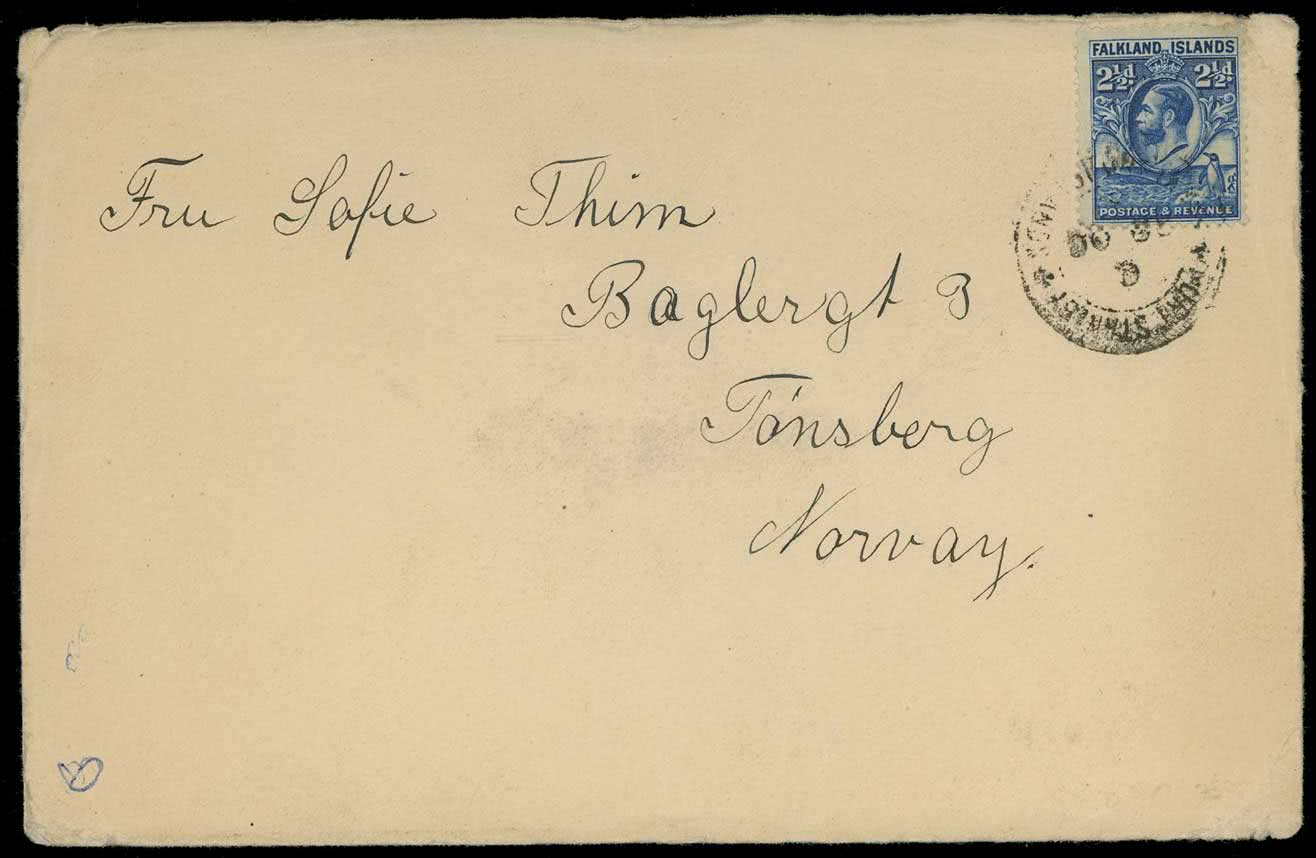 FALKLAND ISLANDS
2½d 2½d
POSTAGE & REVENUE
PORT STANLEY
Fru Sofie Thim
Baglergt 3
Tönsberg
Norvay.